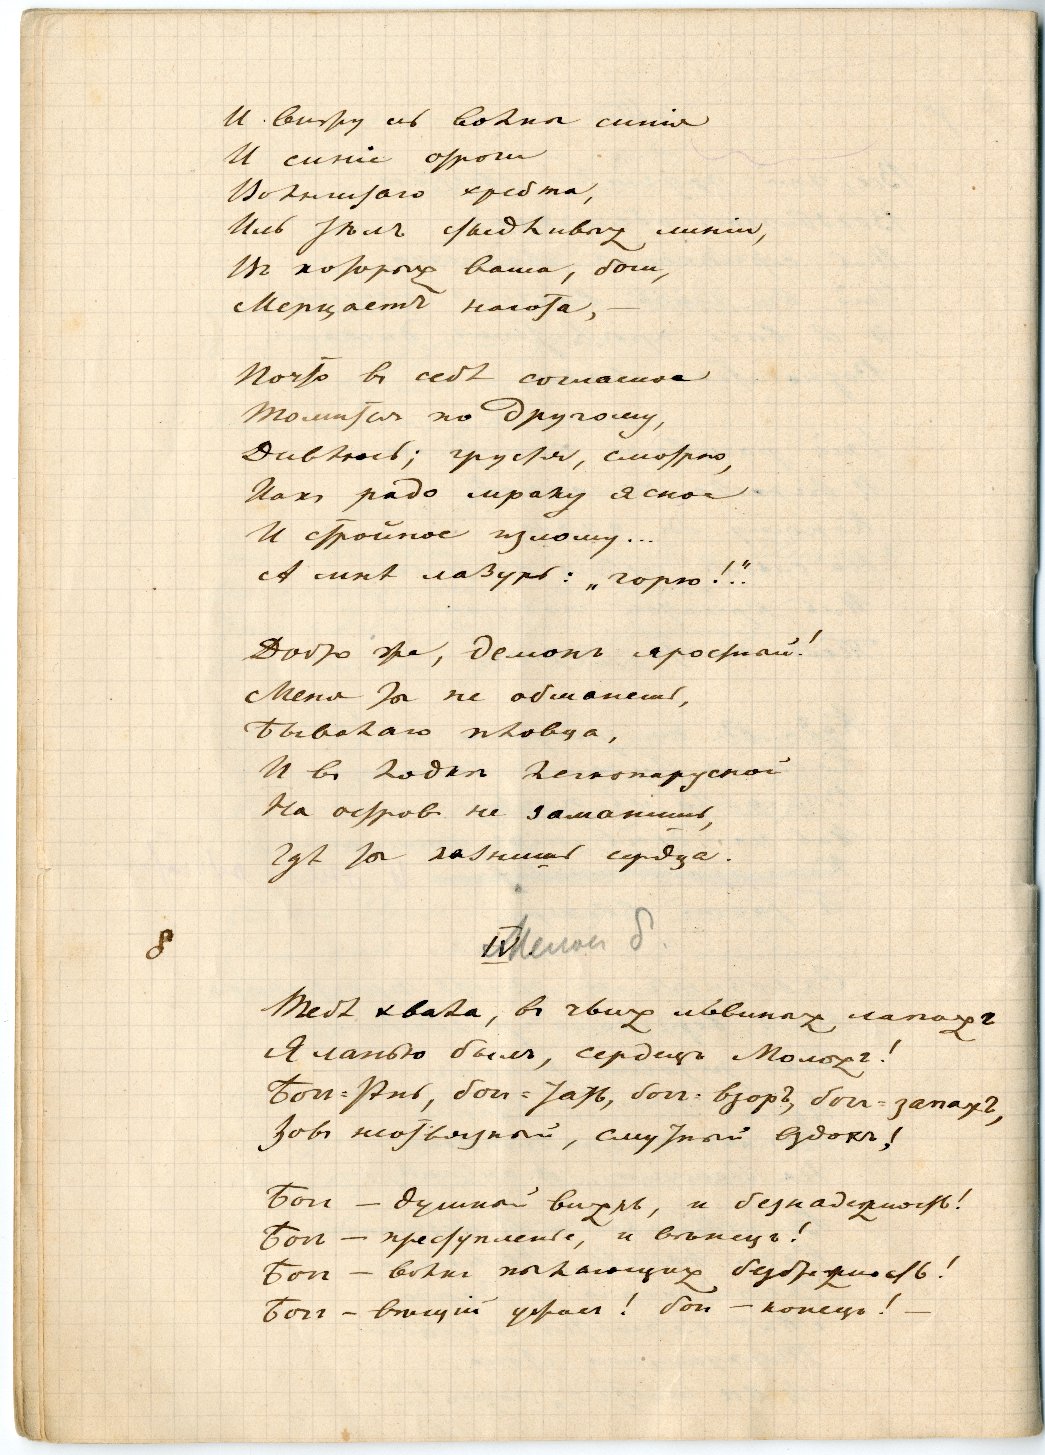 И вихру ль волна синія
И синіе отроги
Волнистаго хребта,
Иль тѣлъ стыдливыхъ линіи,
Въ которыхъ ваша, боги,
Мерцаетъ нагота, —
Почто въ себѣ согласное
Томится по другому,
Дивлюсь; грустя, смотрю,
Какъ радо мраку ясное
И стройное излому...
А мнѣ лазурь: „горю!.."
Добро же, демонъ яростный!
Меня ты не обманешь,
Бывалаго пловца,
И въ лодкѣ легкопарусной
На островъ не заманишь,
Гдѣ ты казнишь сердца.
8
IV.
Тебѣ хвала, въ чьихъ львиныхъ лапахъ
Я ланью былъ, сердецъ Молохъ!
Богъ-Пнь, богъ-тать, богъ-взоръ, богъ-запахъ,
Зовъ неотвязный, смутный вздохъ!
Богъ — душный вихрь, и безнадежность!
Богъ — преступленье, и вѣнецъ!
Богъ — волнъ пылающихъ безбрежность!
Богъ — вѣщій ужасъ! богъ — конецъ! —